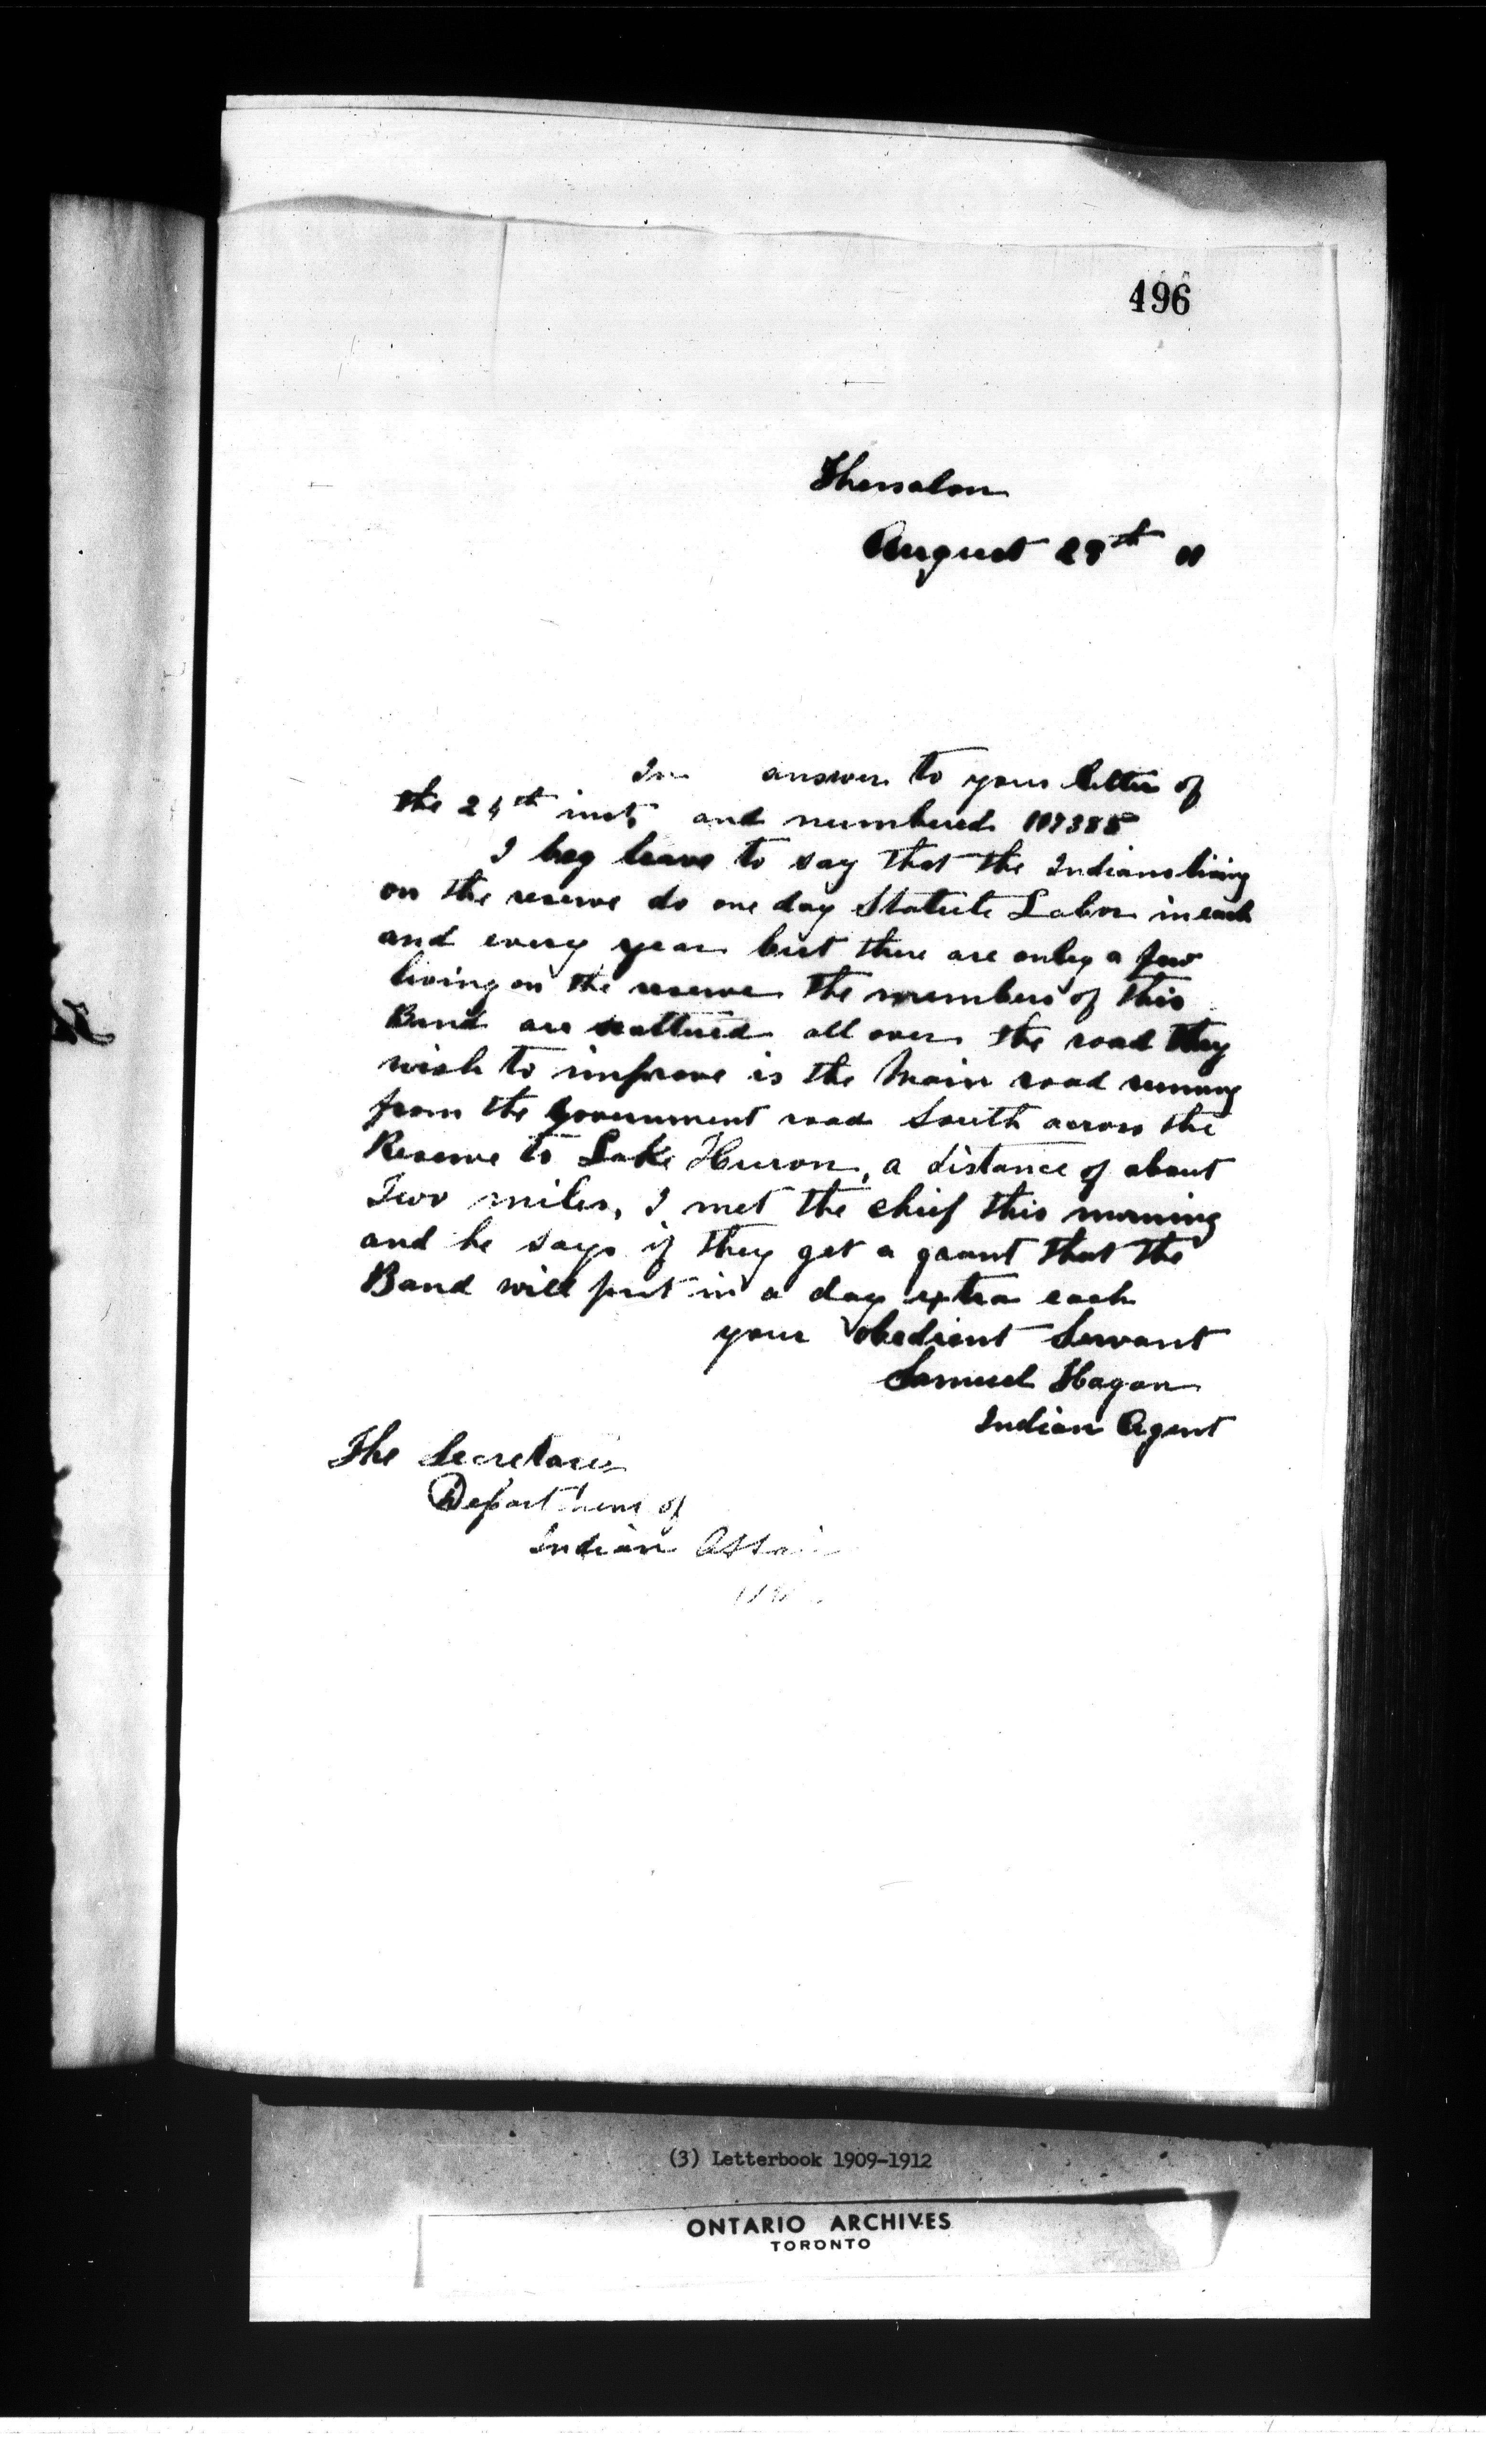 496
Thessalon
August 28th 11
In answer to your letter of
the 24th inst, and numbered 107388
I beg leave to say that the Indians living
on the reserve do one day Statute Labor in each
and every year but there are only a few
living on the reserve the members of this
Band are scattered all over the road they
wish to improve is the Main road running
from the government road South across the
Reserve to Lake Huron, a distance of about
Two miles, I met the chief this morning
and he says if they get a grant that the
Band will put in a day extra each
your obedient Servant
Samuel Hagan
Indian Agent
The Secretary
Department of
Indian Affairs
(3) Letterbook 1909-1912
ONTARIO ARCHIVES
TORONTO